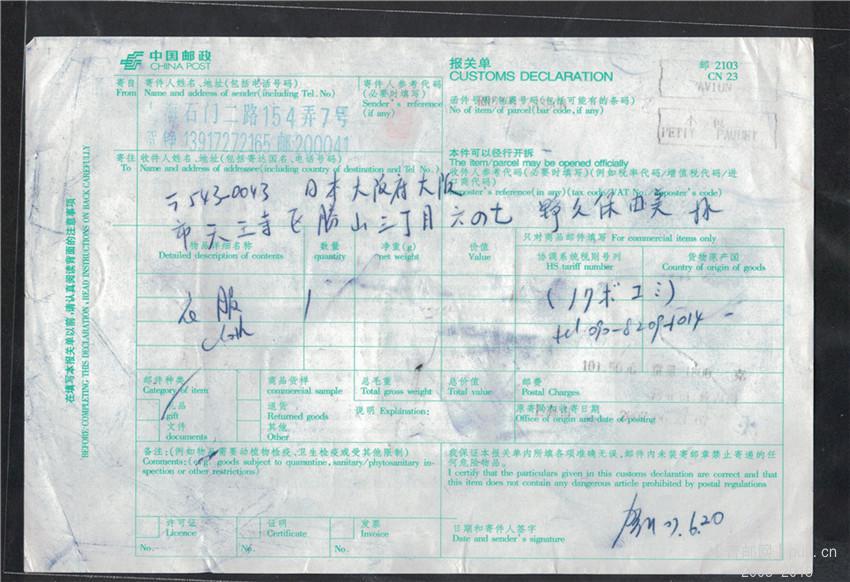 中国邮政
CHINA POST
报关单
CUSTOMS DECLARATION
邮 2103
CN 23
寄自
From
寄件人姓名、地址(包括电话号码)
Name and address of sender(including Tel. No.)
石门二路154弄7号
13917272165 邮200041
寄件人参考代码
(必要时填写)
Sender's reference
(if any)
No of item/of parcel(bar code, if any)
AVION
小包
PETIT PAQUET
本件可以径行开拆
The item/parcel may be opened officially
寄往
To
收件人姓名、地址(包括寄达国名、电话号码)
Name and address of addressee(including country of destination and Tel No.)
收件人参考代码(必要时填写)(例如税率代码/增值税代码/进
口商代码)
〒543-0043 日本大阪府大阪
市天王寺区勝山三丁目六の七 野久保由美 様
只对商品邮件填写 For commercial items only
物品详细名称
Detailed description of contents
数量
quantity
净重(g)
net weight
价值
Value
协调系统税则号列
HS tariff number
货物原产国
Country of origin of goods
衣服 1
(ノクボユミ)
tel 090-8209-1014
邮件种类
Category of item
商品货样
commercial sample
总毛重
Total gross weight
总价值
Total value
邮费
Postal Charges
礼品
gift
退货
Returned goods
说明 Explanation:
原寄局和收寄日期
Office of origin and date of posting
文件
documents
其他
Other
备注:(例如物品需要动植物检疫、卫生检疫或受其他限制)
Comments:(e.g. goods subject to quarantine, sanitary/phytosanitary in-
spection or other restrictions)
我保证本报关单内所填各项准确无误,邮件内未装寄邮章禁止寄递的任
何危险物品。
I certify that the particulars given in this customs declaration are correct and that
this item does not contain any dangerous article prohibited by postal regulations
许可证
Licence
No.
证明
Certificate
No.
发票
Invoice
No.
日期和寄件人签字
Date and sender's signature
07.6.20
在填写本报关单以前,请认真阅读背面的注意事项
BEFORE COMPLETING THIS DECLARATION, READ INSTRUCTIONS ON BACK CAREFULLY